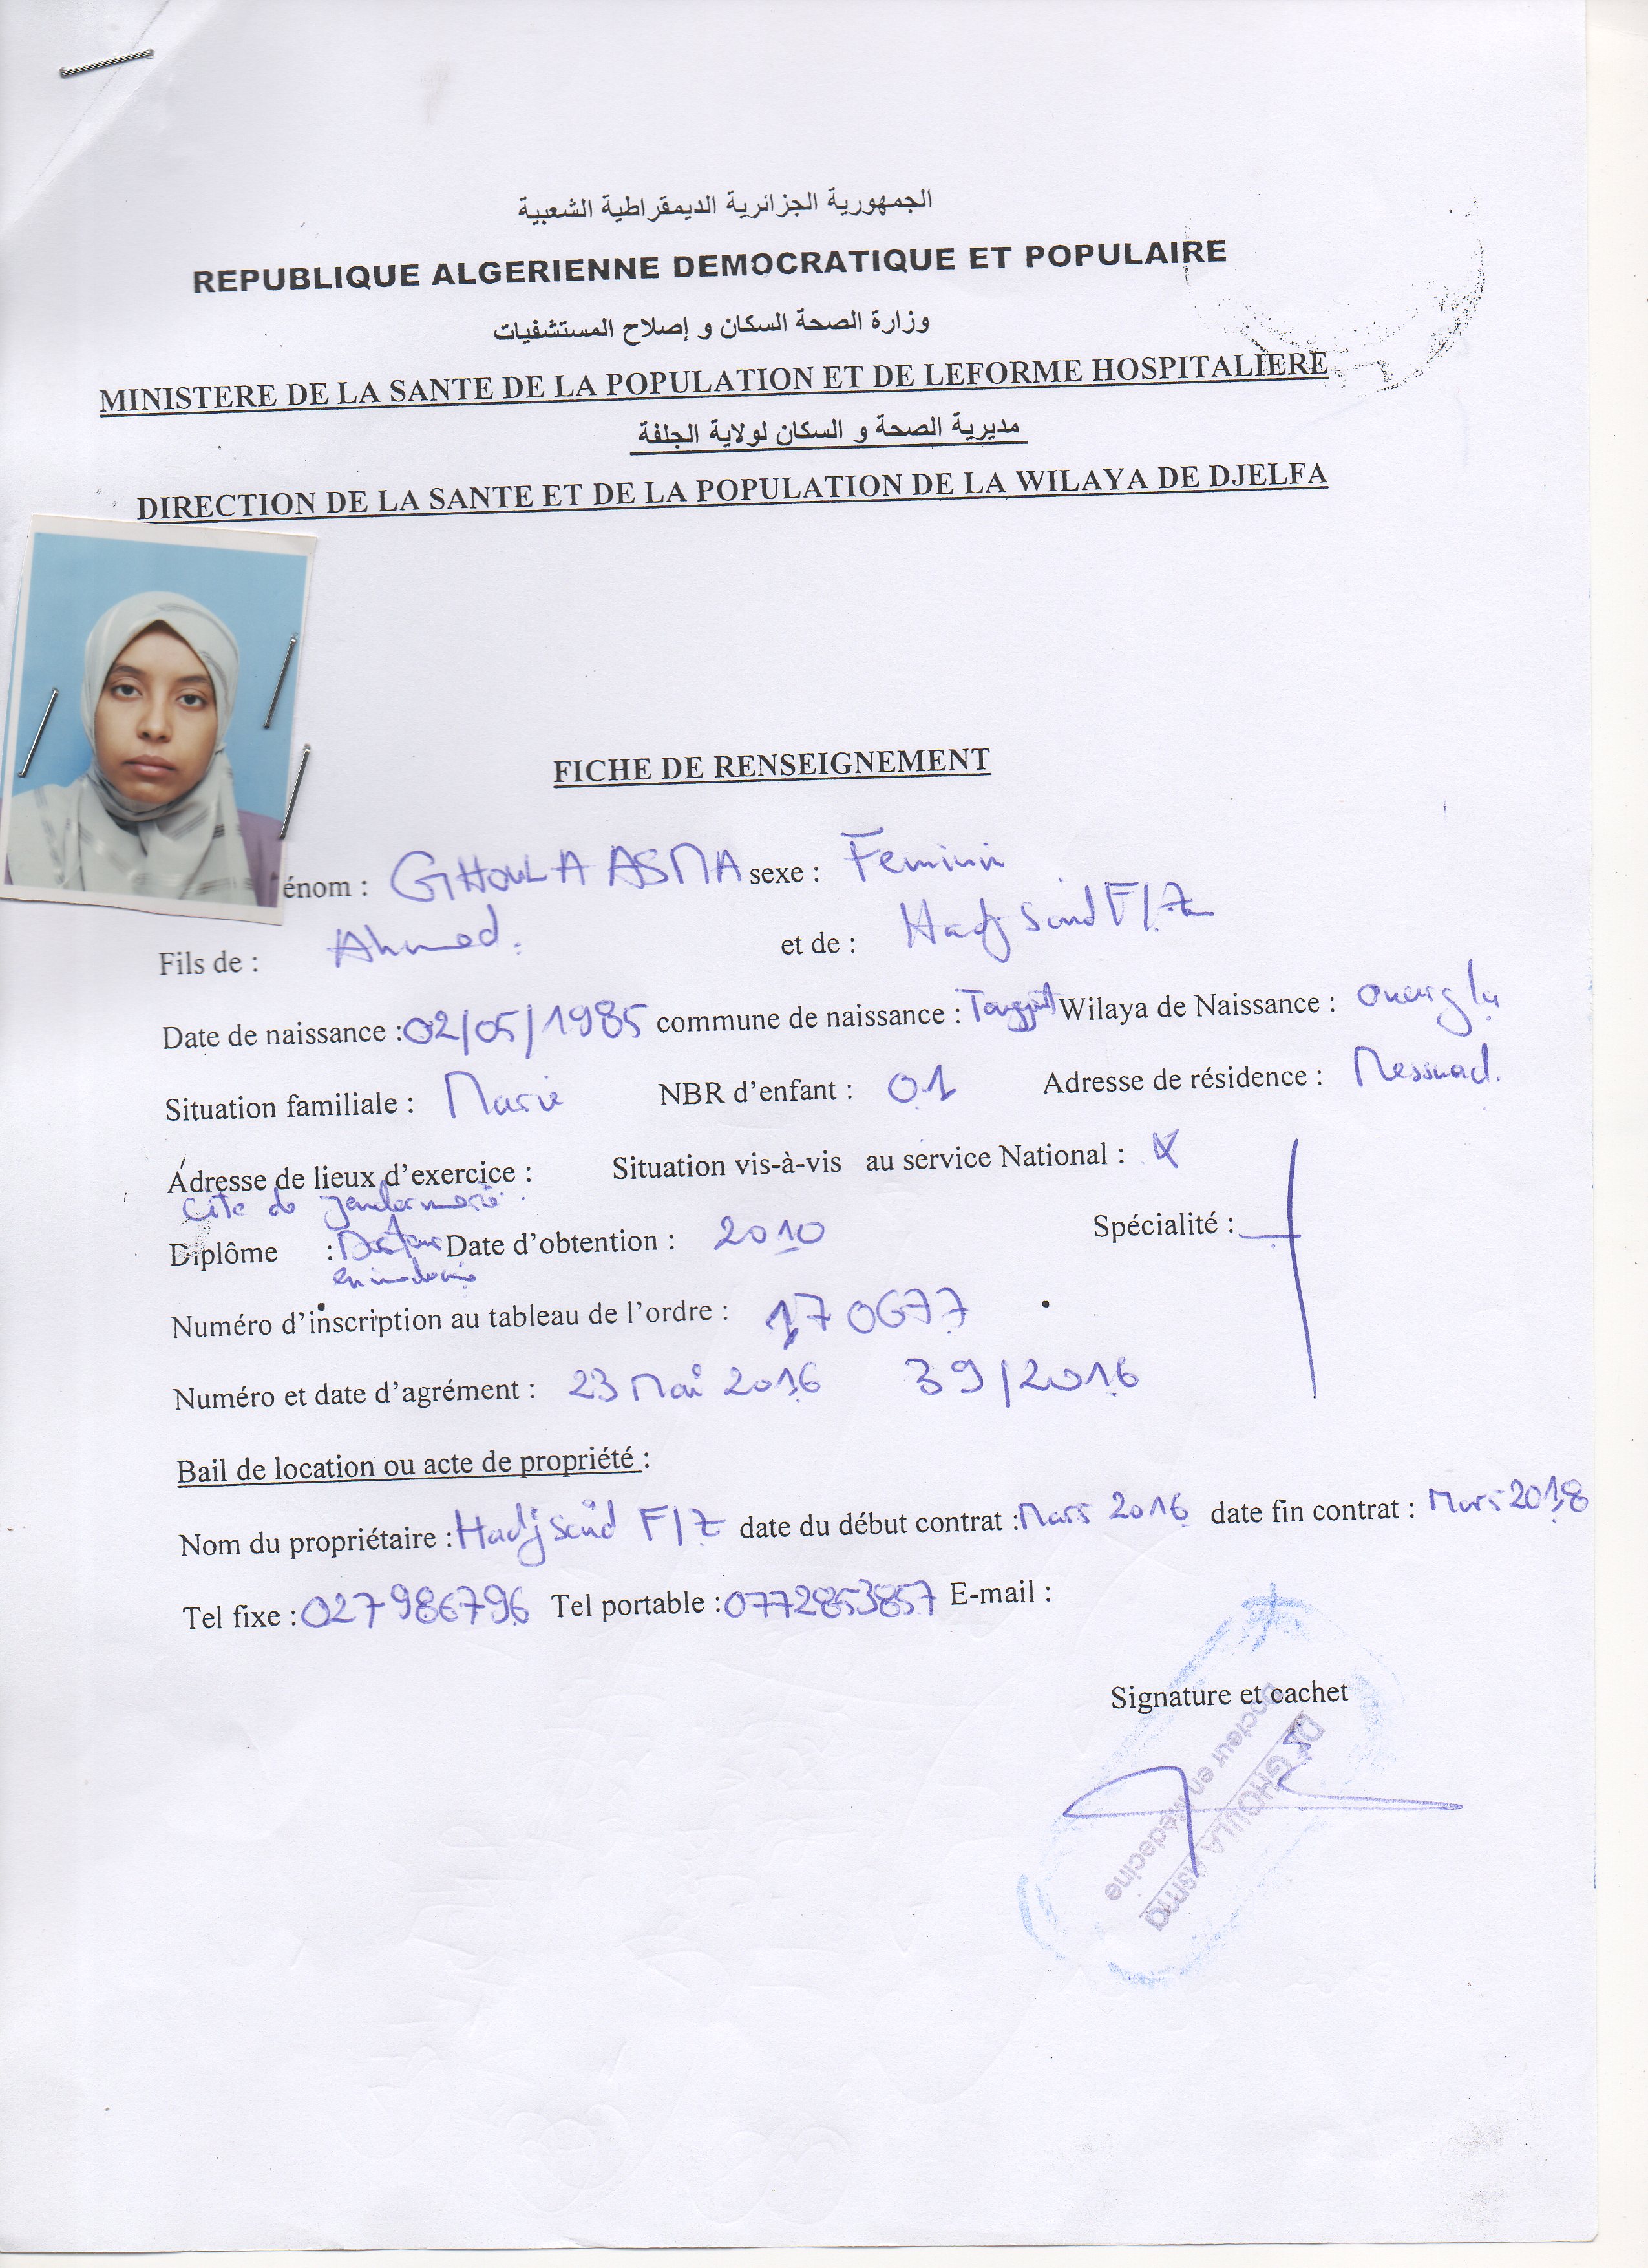 الجمهورية الجزائرية الديمقراطية الشعبية
REPUBLIQUE ALGERIENNE DEMOCRATIQUE ET POPULAIRE
وزارة الصحة السكان و إصلاح المستشفيات
MINISTERE DE LA SANTE DE LA POPULATION ET DE LEFORME HOSPITALIERE
مديرية الصحة و السكان لولاية الجلفة
DIRECTION DE LA SANTE ET DE LA POPULATION DE LA WILAYA DE DJELFA
FICHE DE RENSEIGNEMENT
énom : GHOULA ASMA sexe : Feminin
Fils de : Ahmed. et de : Hadj Said F/Z
Date de naissance : 02/05/1985 commune de naissance : Touggourt Wilaya de Naissance : Ouargla
Situation familiale : Marie NBR d'enfant : 01 Adresse de résidence : Messaad.
Adresse de lieux d'exercice : Situation vis-à-vis au service National : X
Cite de gendarmerie.
Diplôme : Docteur Date d'obtention : 2010 Spécialité :
en medecine
Numéro d'inscription au tableau de l'ordre : 170677
Numéro et date d'agrément : 23 Mai 2016 39/2016
Bail de location ou acte de propriété :
Nom du propriétaire : Hadj Said F/Z date du début contrat : Mars 2016 date fin contrat : Mars 2018
Tel fixe : 027986796 Tel portable : 0772853857 E-mail :
Signature et cachet
Dr GHOULA Asma
Docteur en Médecine